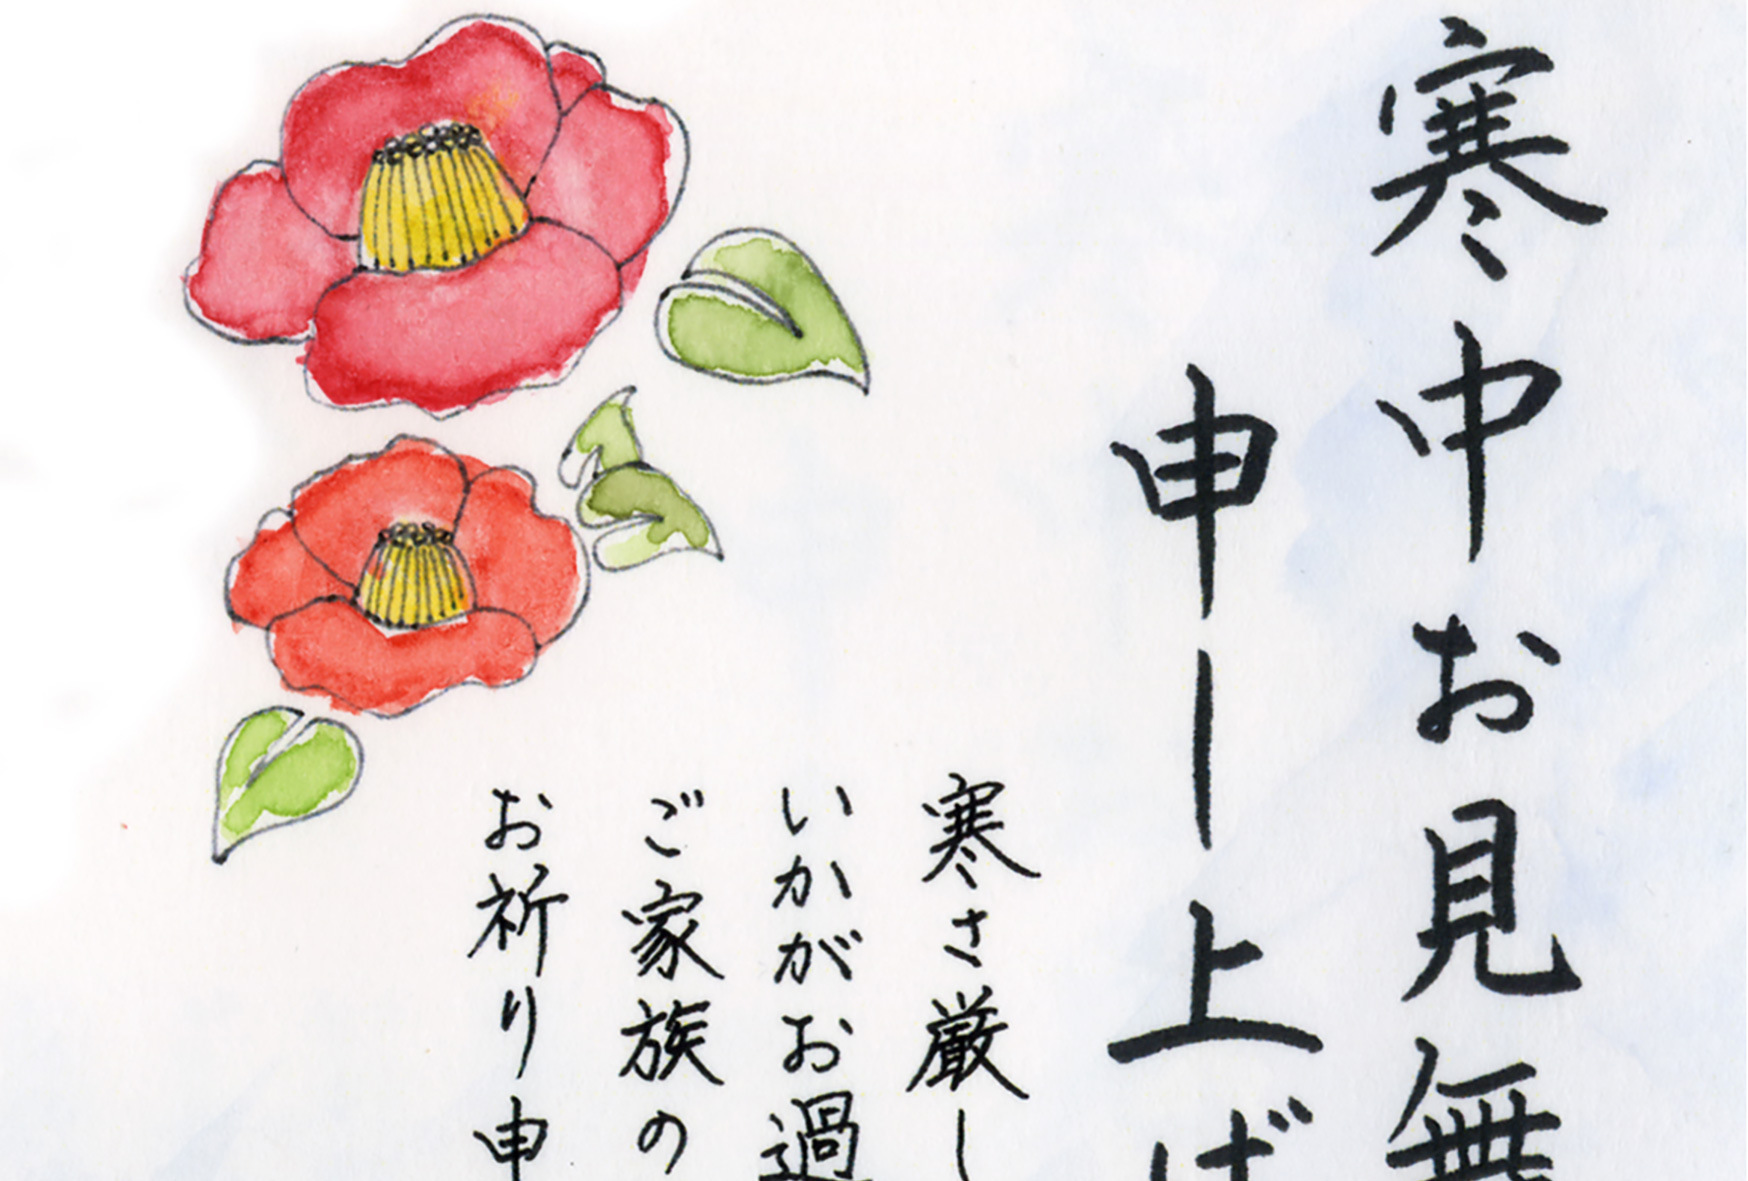 寒中お見無
申し上げ
寒さ厳し
いかがお過
ご家族の
お祈り申